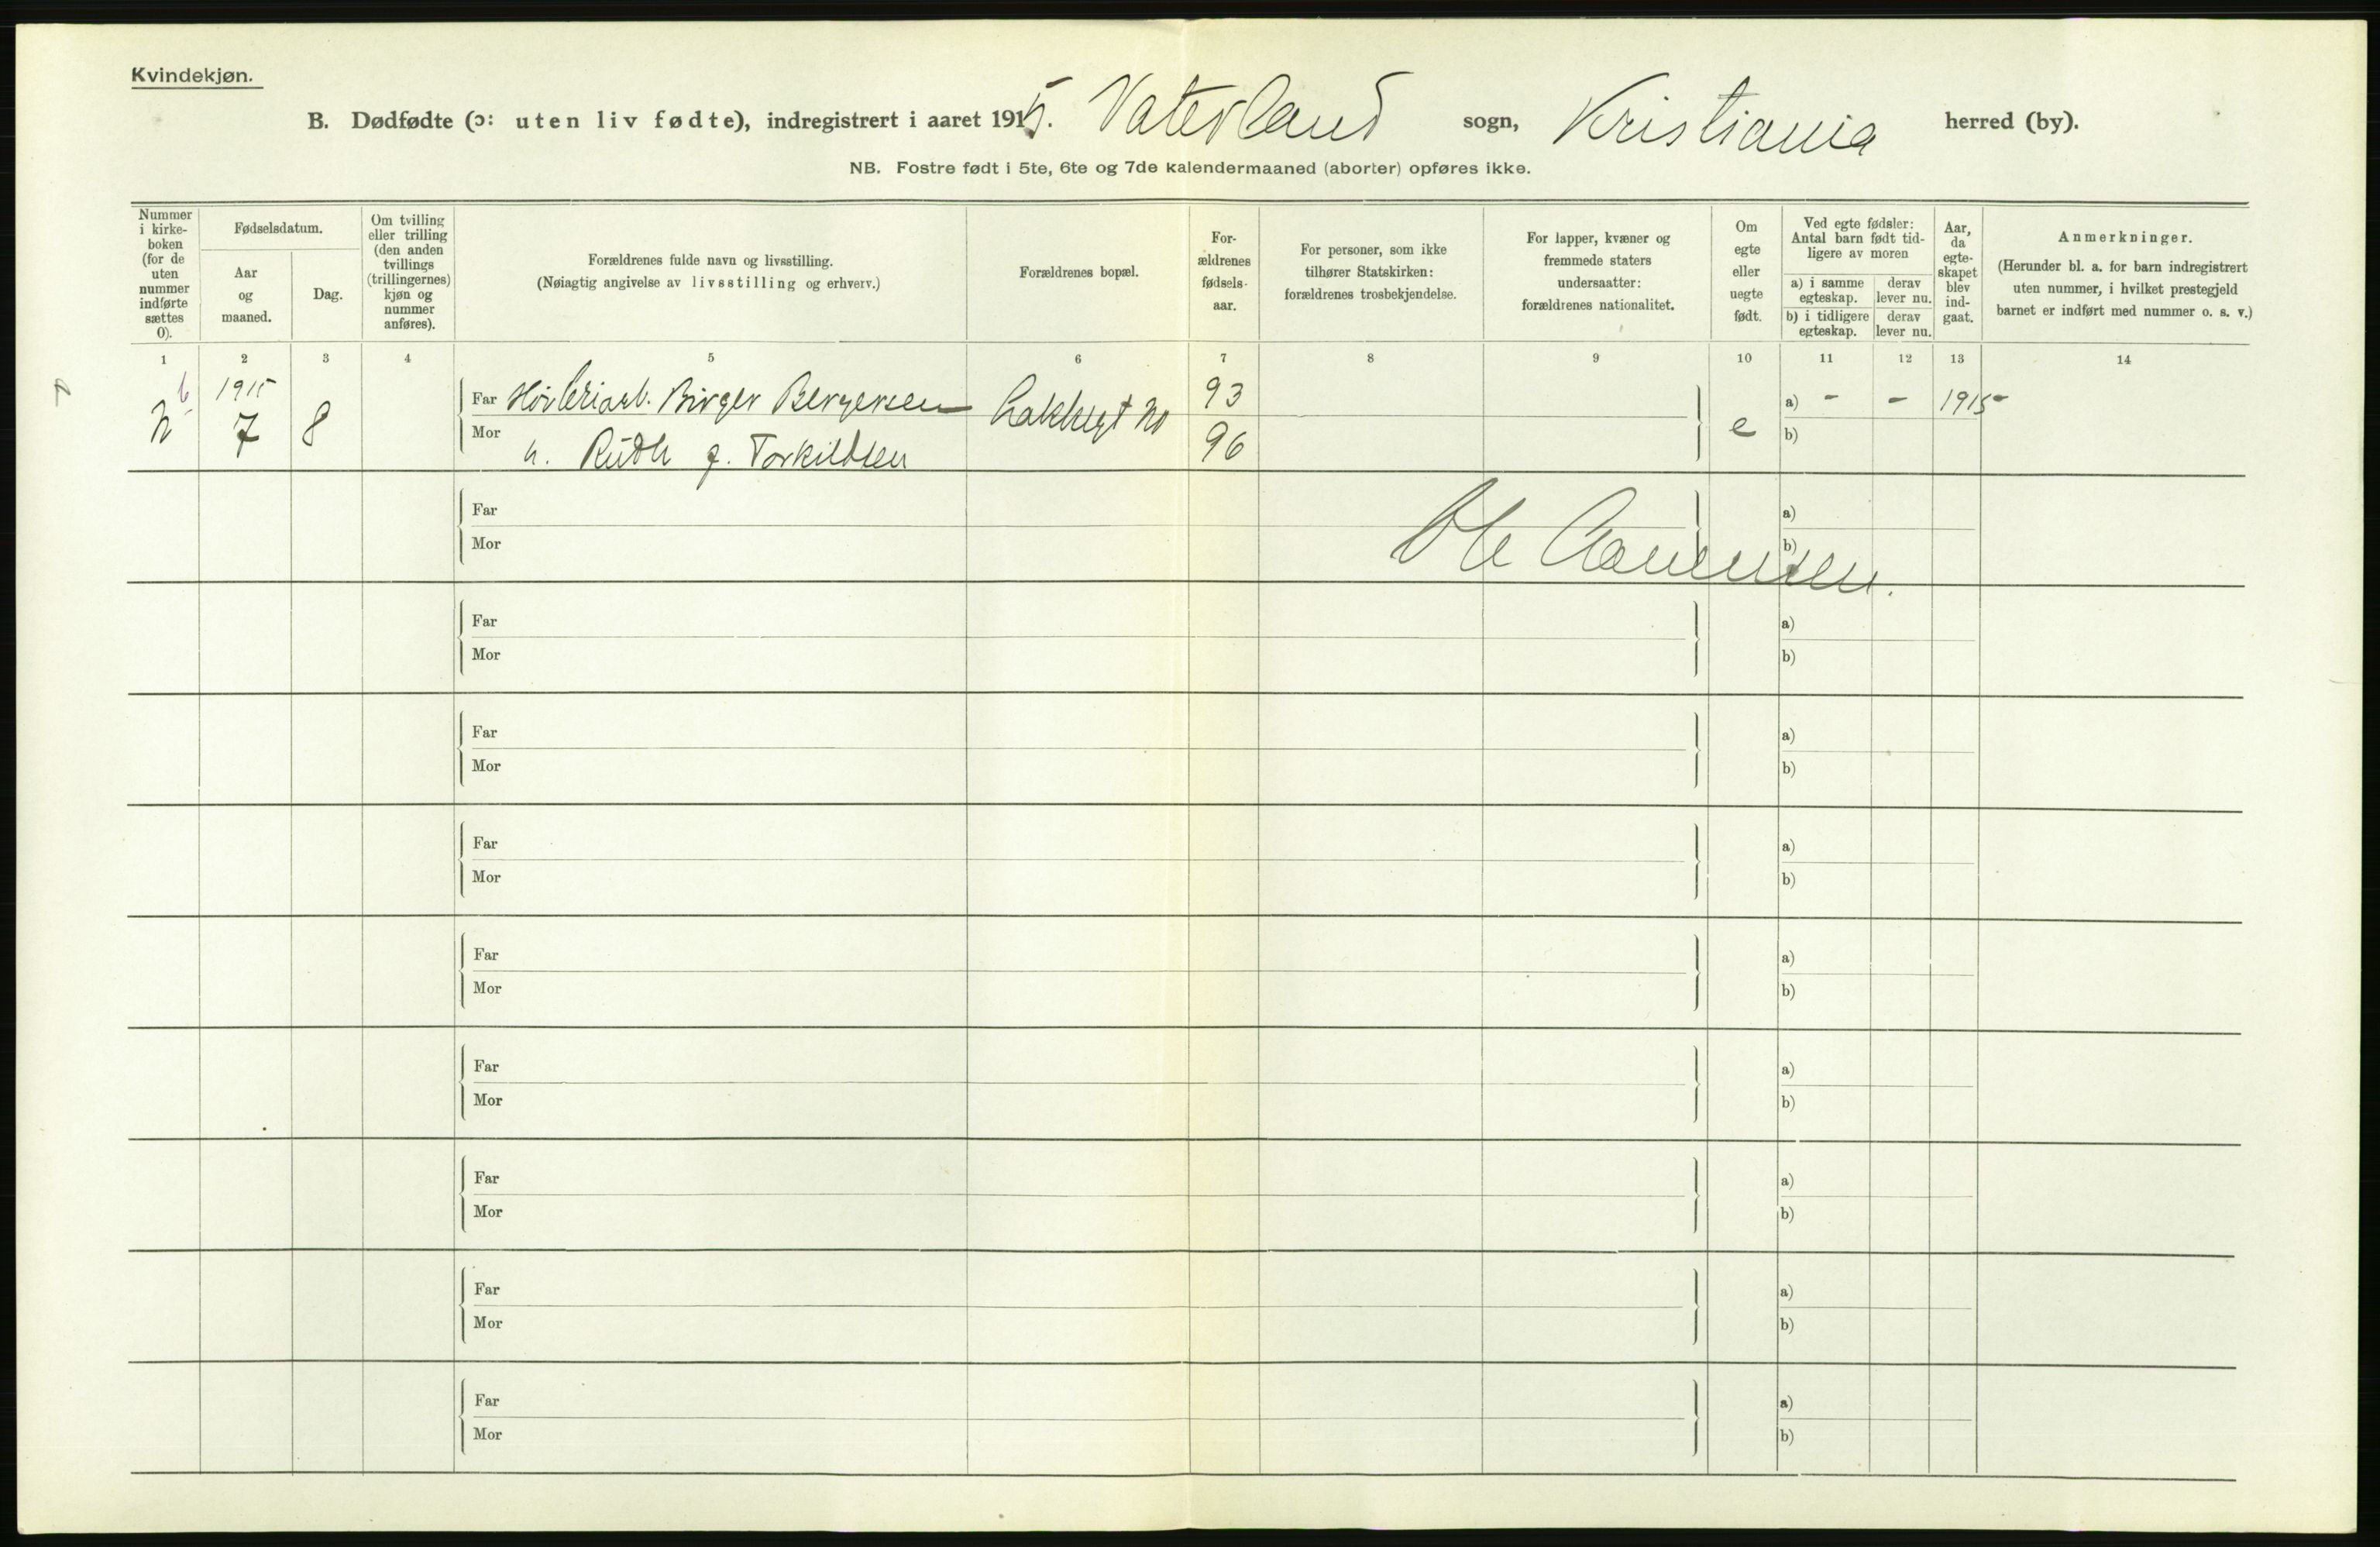 Kvindekjøn.
B. Dødfødte (ɔ: uten liv fødte), indregistrert i aaret 1915. Vaterland sogn, Kristiania herred (by).
NB. Fostre født i 5te, 6te og 7de kalendermaaned (aborter) opføres ikke.
Nummer i kirke-boken (for de uten nummer indførte sættes 0).
Fødselsdatum.
Aar og maaned.
Dag.
Om tvilling eller trilling (den anden tvillings (trillingernes) kjøn og nummer anføres).
Forældrenes fulde navn og livsstilling.
(Nøiagtig angivelse av livsstilling og erhverv.)
Forældrenes bopæl.
For-ældrenes fødsels-aar.
For personer, som ikke tilhører Statskirken: forældrenes trosbekjendelse.
For lapper, kvæner og fremmede staters undersaatter: forældrenes nationalitet.
Om egte eller uegte født.
Ved egte fødsler: Antal barn født tid-ligere av moren
a) i samme egteskap.
derav lever nu.
b) i tidligere egteskap.
derav lever nu.
Aar, da egte-skapet blev ind-gaat.
Anmerkninger.
(Herunder bl. a. for barn indregistrert uten nummer, i hvilket prestegjeld barnet er indført med nummer o. s. v.)
1 2 3 4 5 6 7 8 9 10 11 12 13 14
1915
Far Birger Bergersen 93 a) - - 1915
7 8 e
Mor h. Ruth f. Torkildsen 96 b)
Far a)
Mor b)
Far a)
Mor b)
Far a)
Mor b)
Far a)
Mor b)
Far a)
Mor b)
Far a)
Mor b)
Far a)
Mor b)
Far a)
Mor b)
Far a)
Mor b)